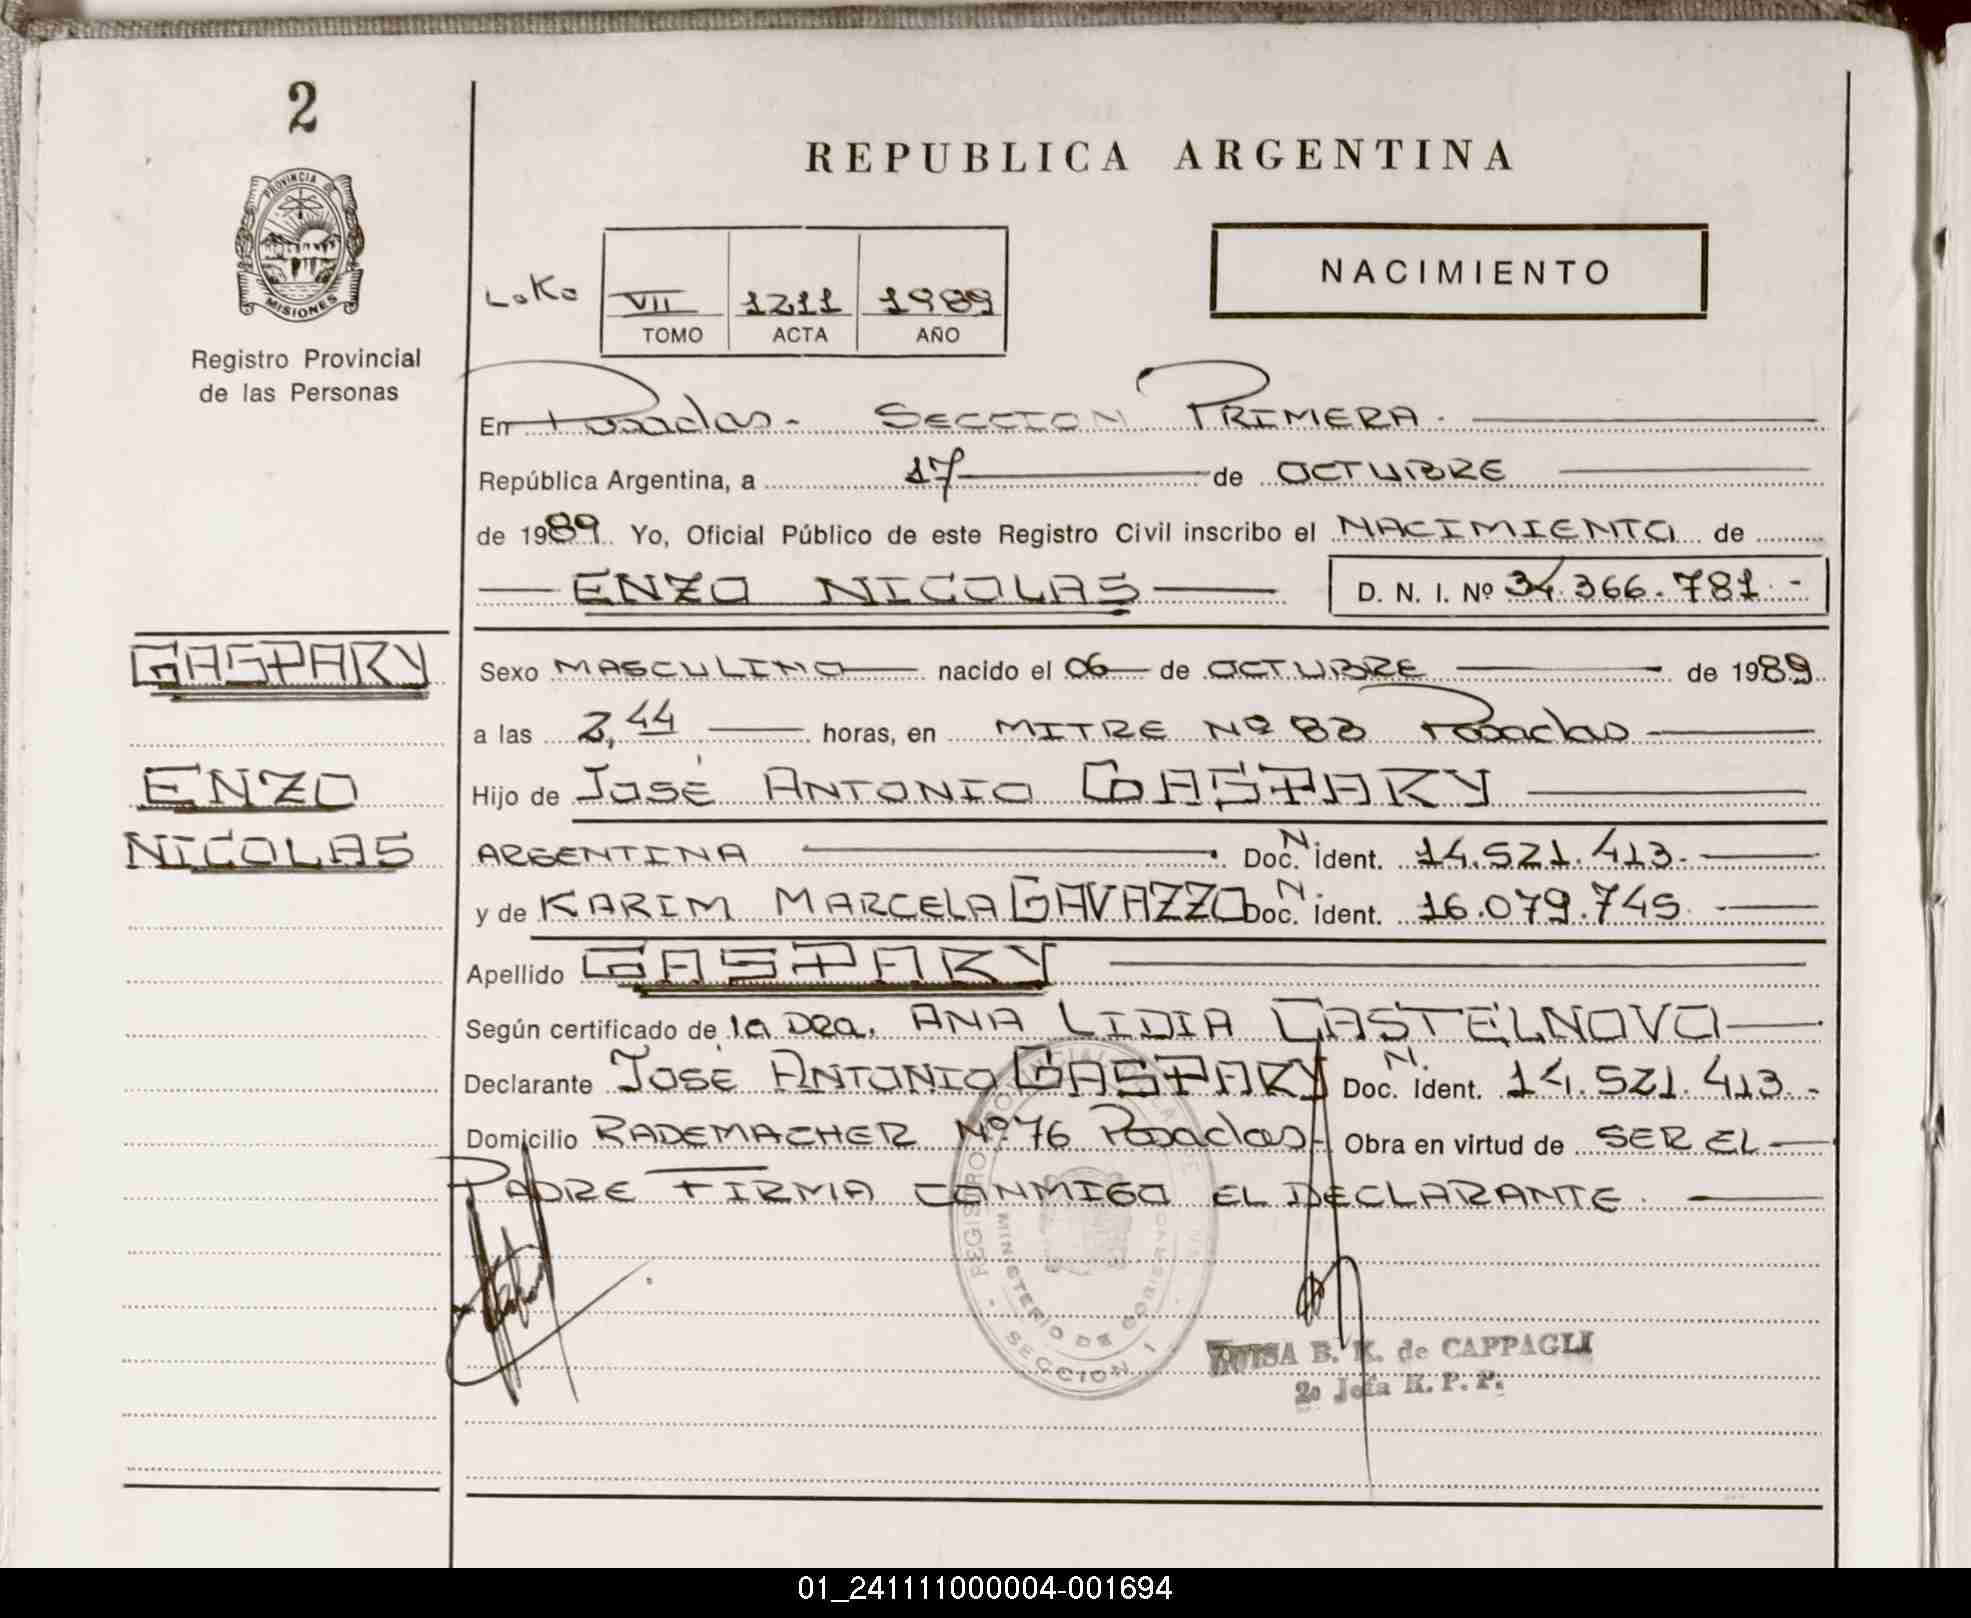 2
PROVINCIA DE
MISIONES
Registro Provincial
de las Personas
REPUBLICA ARGENTINA
NACIMIENTO
VII 1211 1989
TOMO ACTA AÑO
En Posadas - SECCION PRIMERA.
República Argentina, a 17 de OCTUBRE
de 1989. Yo, Oficial Público de este Registro Civil inscribo el NACIMIENTO de
ENZO NICOLAS D. N. I. Nº 34.366.781.-
GASPARY
ENZO
NICOLAS
Sexo MASCULINO nacido el 06 de OCTUBRE de 1989
a las 2,44 horas, en MITRE Nº 83 Posadas
Hijo de JOSÉ ANTONIO GASPARY
ARGENTINA Doc. N. ident. 14.521.413.-
y de KARIM MARCELA GAVAZZO Doc. N. ident. 16.079.745.
Apellido GASPARY
Según certificado de la DRA. ANA LIDIA CASTELNOVO
Declarante JOSÉ ANTONIO GASPARY Doc. N. Ident. 14.521.413.-
Domicilio RADEMACHER Nº 76 Posadas- Obra en virtud de SER EL
PADRE FIRMA CONMIGO EL DECLARANTE.
MINISTERIO DE GOBIERNO
SECCION I
LUISA B. K. de CAPPAGLI
2º Jefa R. P. P.
01_241111000004-001694